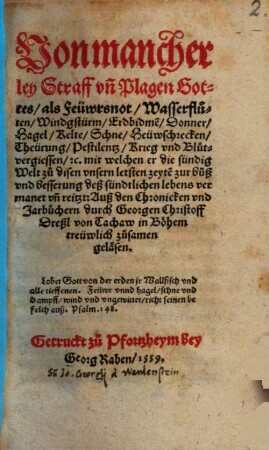 2.
Von mancher
ley Straff vñ Plagen Got-
tes/als Feüwrsnot/Wasserflů-
ten/Windgstürm/Erdbidmē/Donner/
Hagel/Kelte/Schne/Heüwschrecken/
Theürung/Pestilentz/Krieg vnd Blůt-
vergiessen/ꝛc. mit welchen er die sündig
Welt zů disen vnsern letsten zeytē zur bůß
vnd besserung deß sündtlichen lebens ver
manet vñ reitzt: Auß den Chronicken vnd
Jarbüchern durch Georgen Christoff
Dreßl von Tachaw in Böhem
treüwlich zůsamen
geläsen.
Lobet Gott von der erden jr Wallfisch vnd
alle tieffenen. Feüwr vnnd hagel/schne vnd
dampff/wind vnd vngewitter/richt seinen be
felch auß. Psalm. 148.
Getruckt zů Pfortzheym bey
Georg Raben/1559.